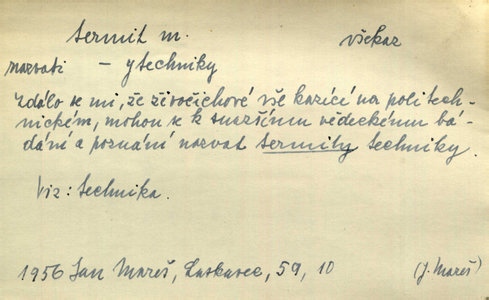 termit m. všekaz
nazvati - y techniky
Zdálo se mi, že živočichové vše kazící na politech-
nickém, mohou se k snazšímu vědeckému bá-
dání a poznání nazvat termity techniky.
Viz: technika.
1956 Jan Mareš, 59, 10 (J. Mareš)